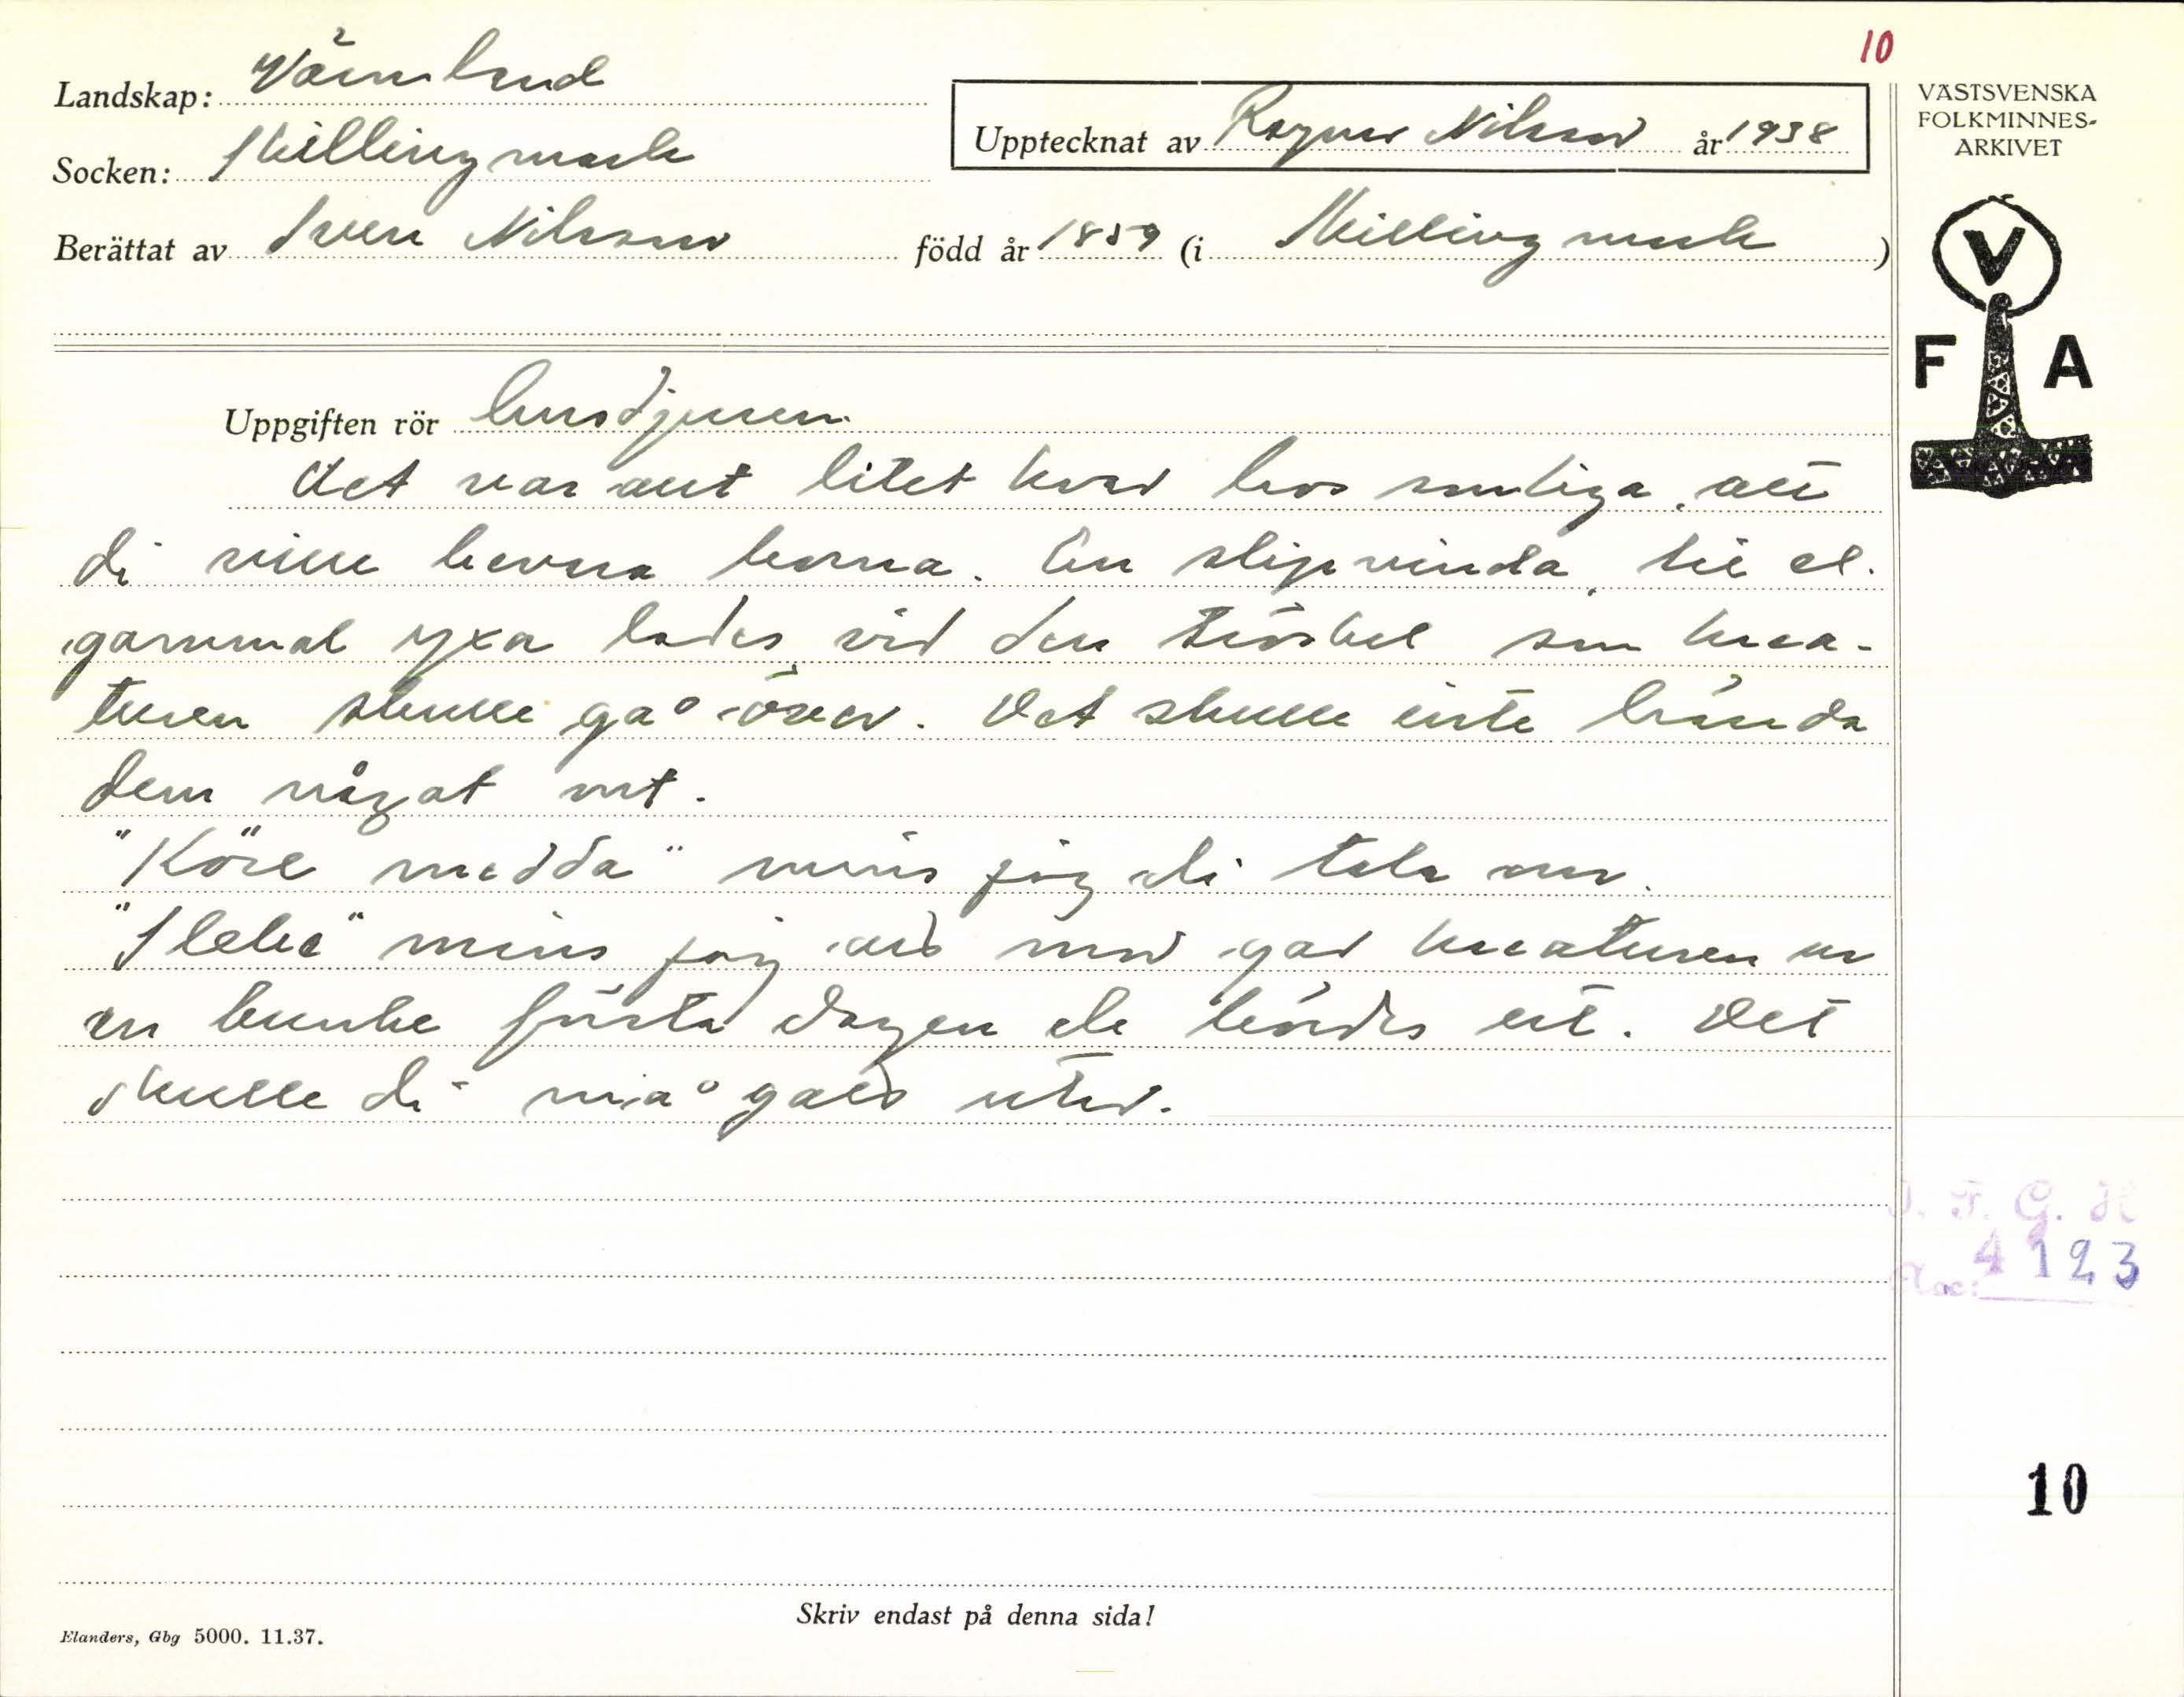 10
Landskap: Värmland
Socken: Skillingmark
Upptecknat av Ragnar Nilsson år 1938
Berättat av Sven Nilsson född år 1859 (i Skillingmark)
VÄSTSVENSKA
FOLKMINNES-
ARKIVET
V
F A
Uppgiften rör husdjuren.
Det var ont litet hos somliga, att
di ville . En slipvinda, lie el.
gammal yxa lades vid den tröskel som krea-
turen skulle gå över. Det skulle inte hända
dem något ont.
"Köre medda" minns jag di tala om.
"Sleke" minns jag att man gav kreaturen ur
en bunke första dagen de leddes ut. Det
skulle di må gott utav.
I. F. G. H
Acc: 4123
10
Skriv endast på denna sida!
Elanders, Gbg 5000. 11.37.